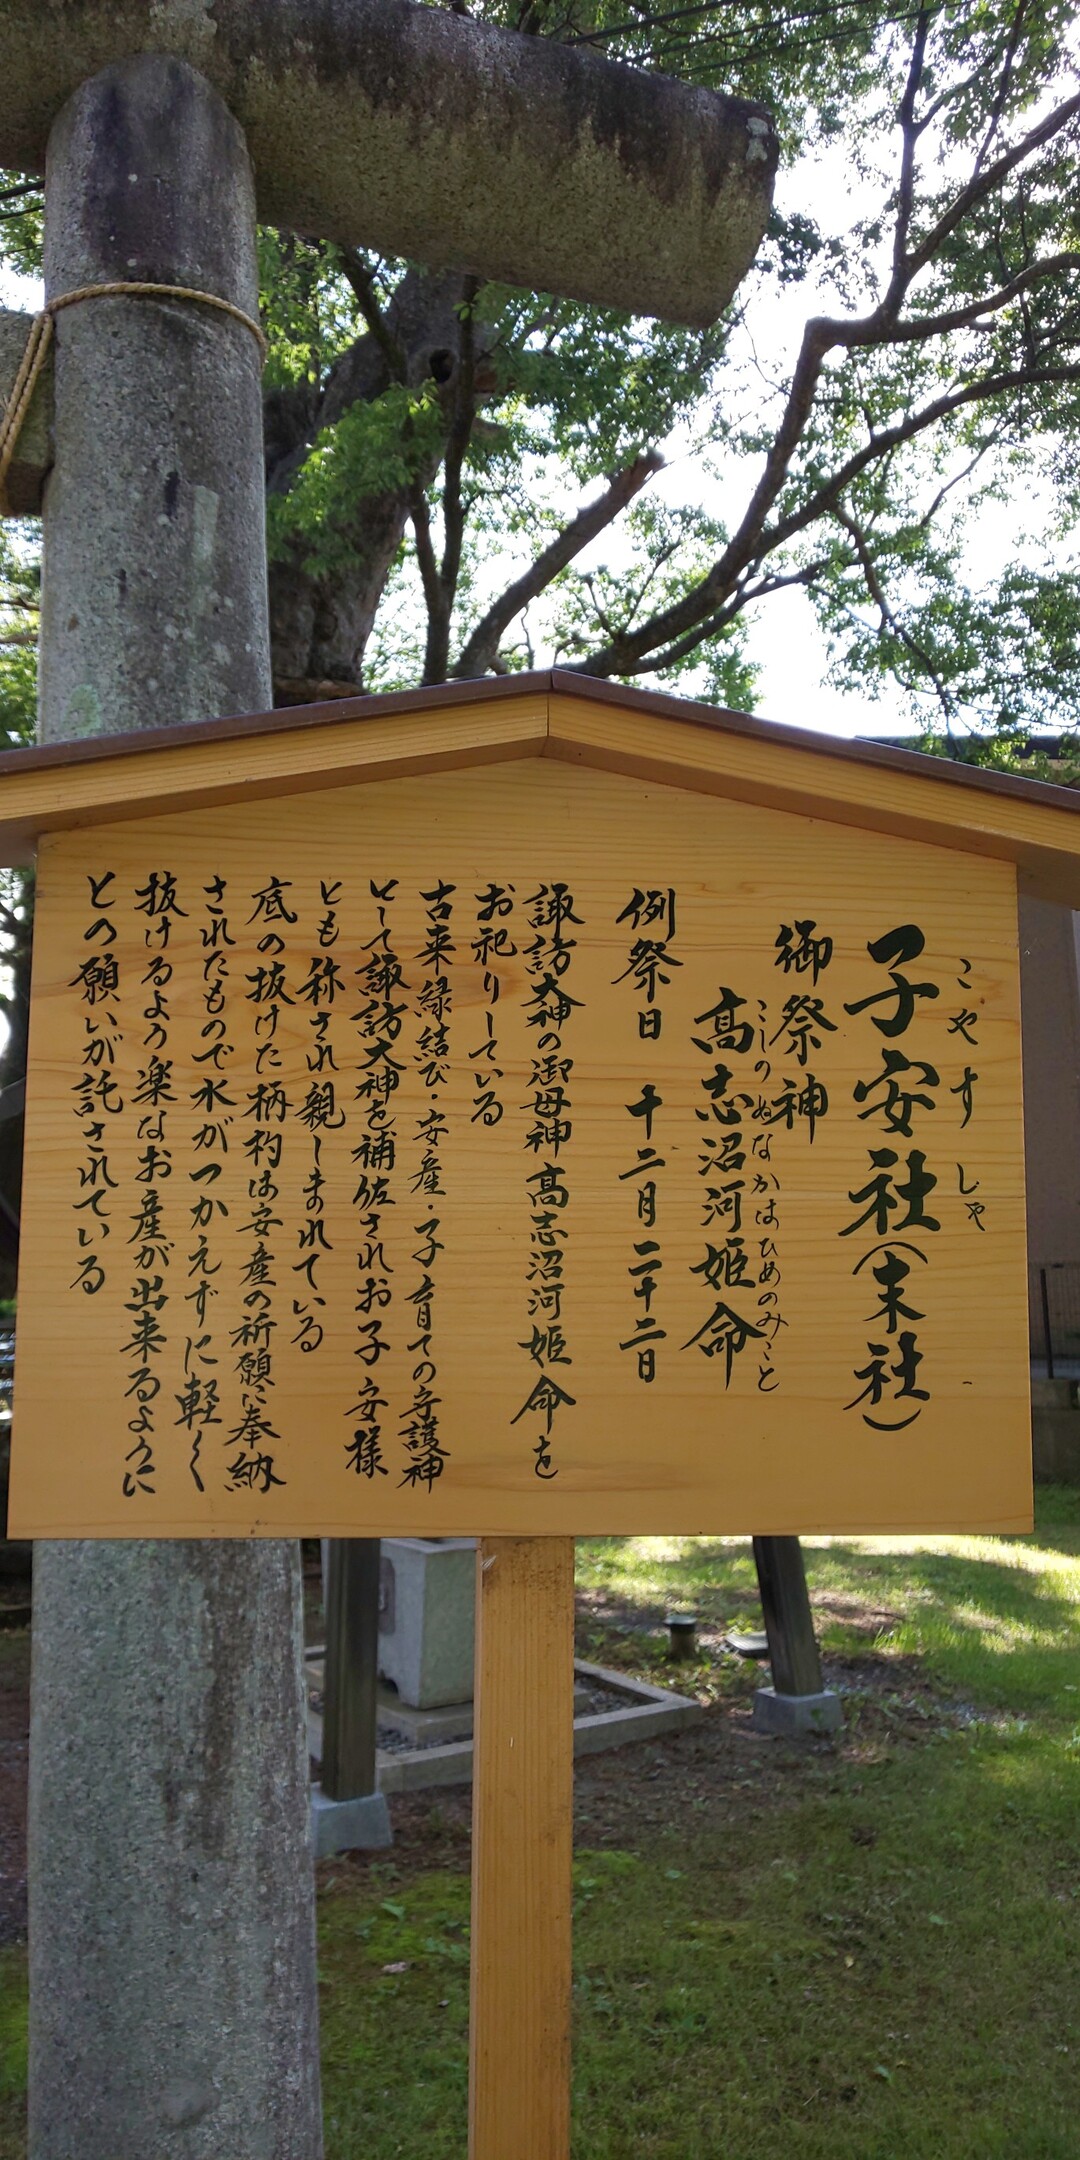 こやすしゃ
子安社(末社)
御祭神
こしのぬなかはひめのみこと
高志沼河姫命
例祭日 十二月二十二日
諏訪大神の御母神高志沼河姫命を
お祀りしている
古来縁結び・安産・子育ての守護神
として諏訪大神を補佐されお子安様
とも称され親しまれている
底の抜けた柄杓は安産の祈願に奉納
されたもので水がつかえずに軽く
抜けるよう楽なお産が出来るように
との願いが託されている